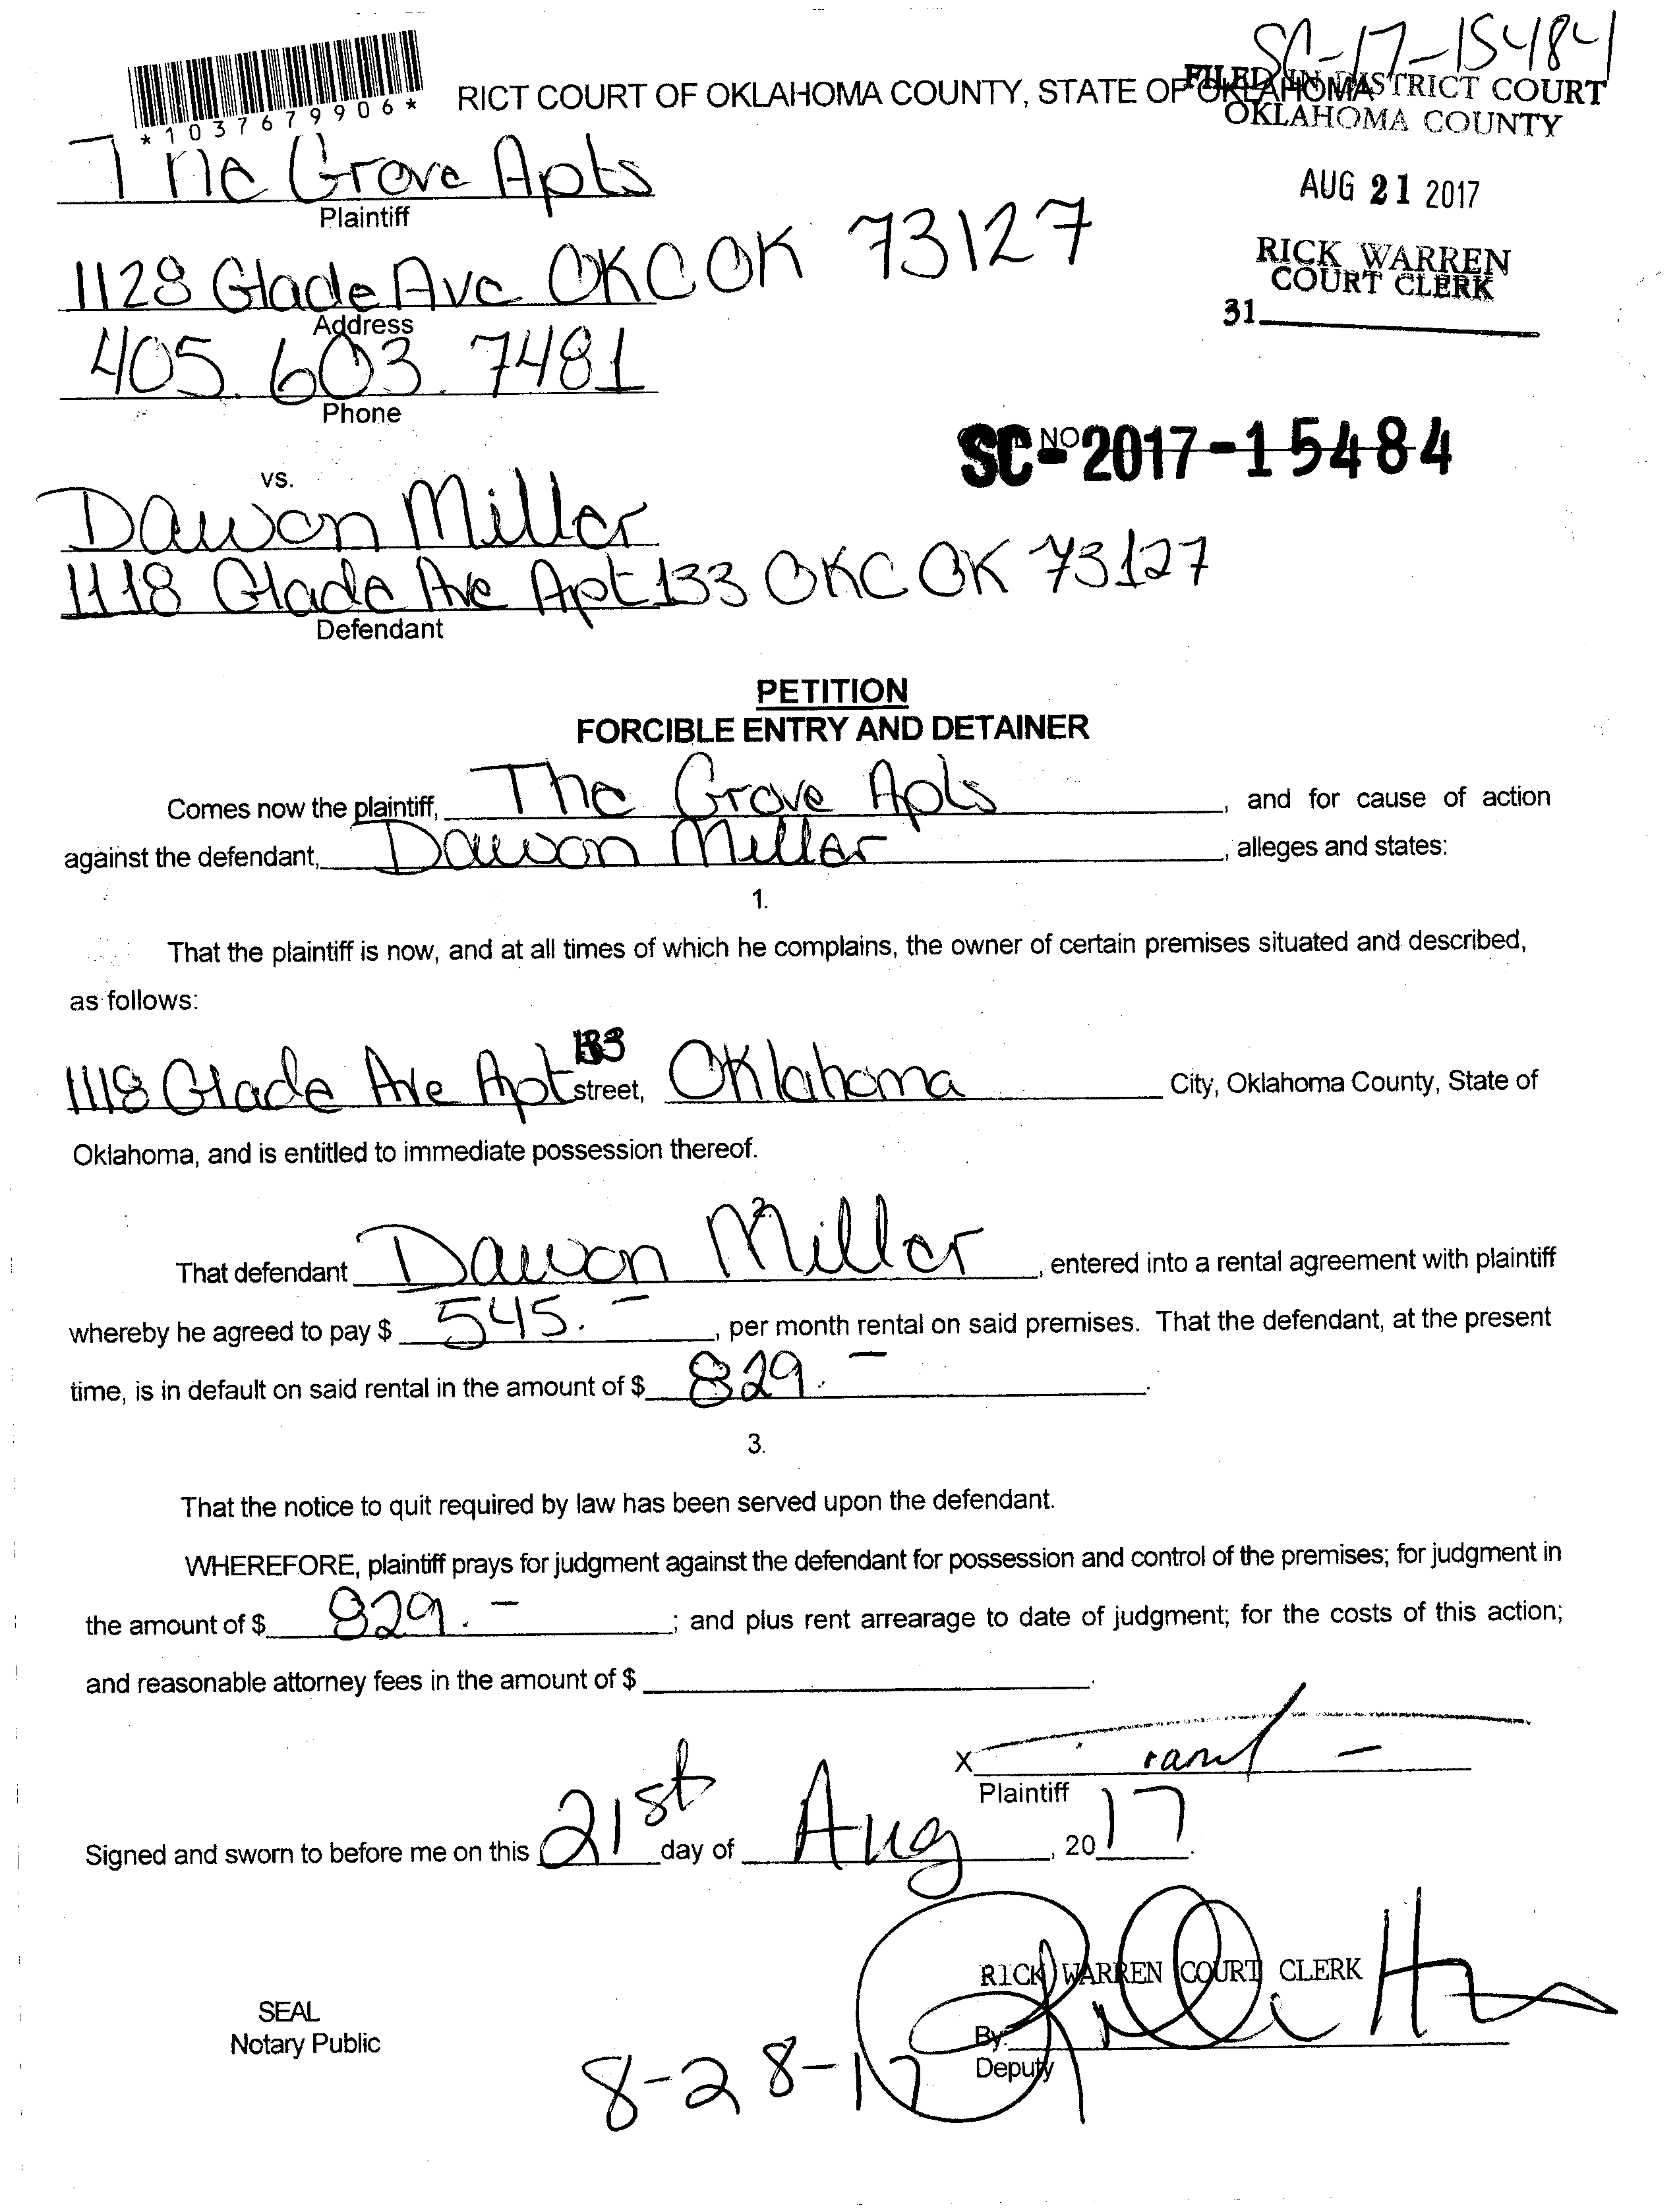 SC-17-15484
RICT COURT OF OKLAHOMA COUNTY, STATE OF OKLAHOMA
FILED IN DISTRICT COURT
OKLAHOMA COUNTY
*1037679906*
AUG 21 2017
RICK WARREN
COURT CLERK
31
The Grove Apts
Plaintiff
1128 Glade Ave OKC OK 73127
Address
405.603.7481
Phone
SC-NO 2017-15484
vs.
Dawon Miller
1118 Glade Ave Apt 133 OKC OK 73127
Defendant
PETITION
FORCIBLE ENTRY AND DETAINER
Comes now the plaintiff, The Grove Apts, and for cause of action
against the defendant, Dawon Miller, alleges and states:
1.
That the plaintiff is now, and at all times of which he complains, the owner of certain premises situated and described,
as follows:
1118 Glade Ave Apt 133 street, Oklahoma City, Oklahoma County, State of
Oklahoma, and is entitled to immediate possession thereof.
2.
That defendant Dawon Miller, entered into a rental agreement with plaintiff
whereby he agreed to pay $ 545.-, per month rental on said premises. That the defendant, at the present
time, is in default on said rental in the amount of $ 829.-.
3.
That the notice to quit required by law has been served upon the defendant.
WHEREFORE, plaintiff prays for judgment against the defendant for possession and control of the premises; for judgment in
the amount of $ 829.-; and plus rent arrearage to date of judgment; for the costs of this action;
and reasonable attorney fees in the amount of $.
X
Plaintiff
Signed and sworn to before me on this 21st day of Aug, 2017.
RICK WARREN COURT CLERK
SEAL
Notary Public
By:
Deputy
8-28-17